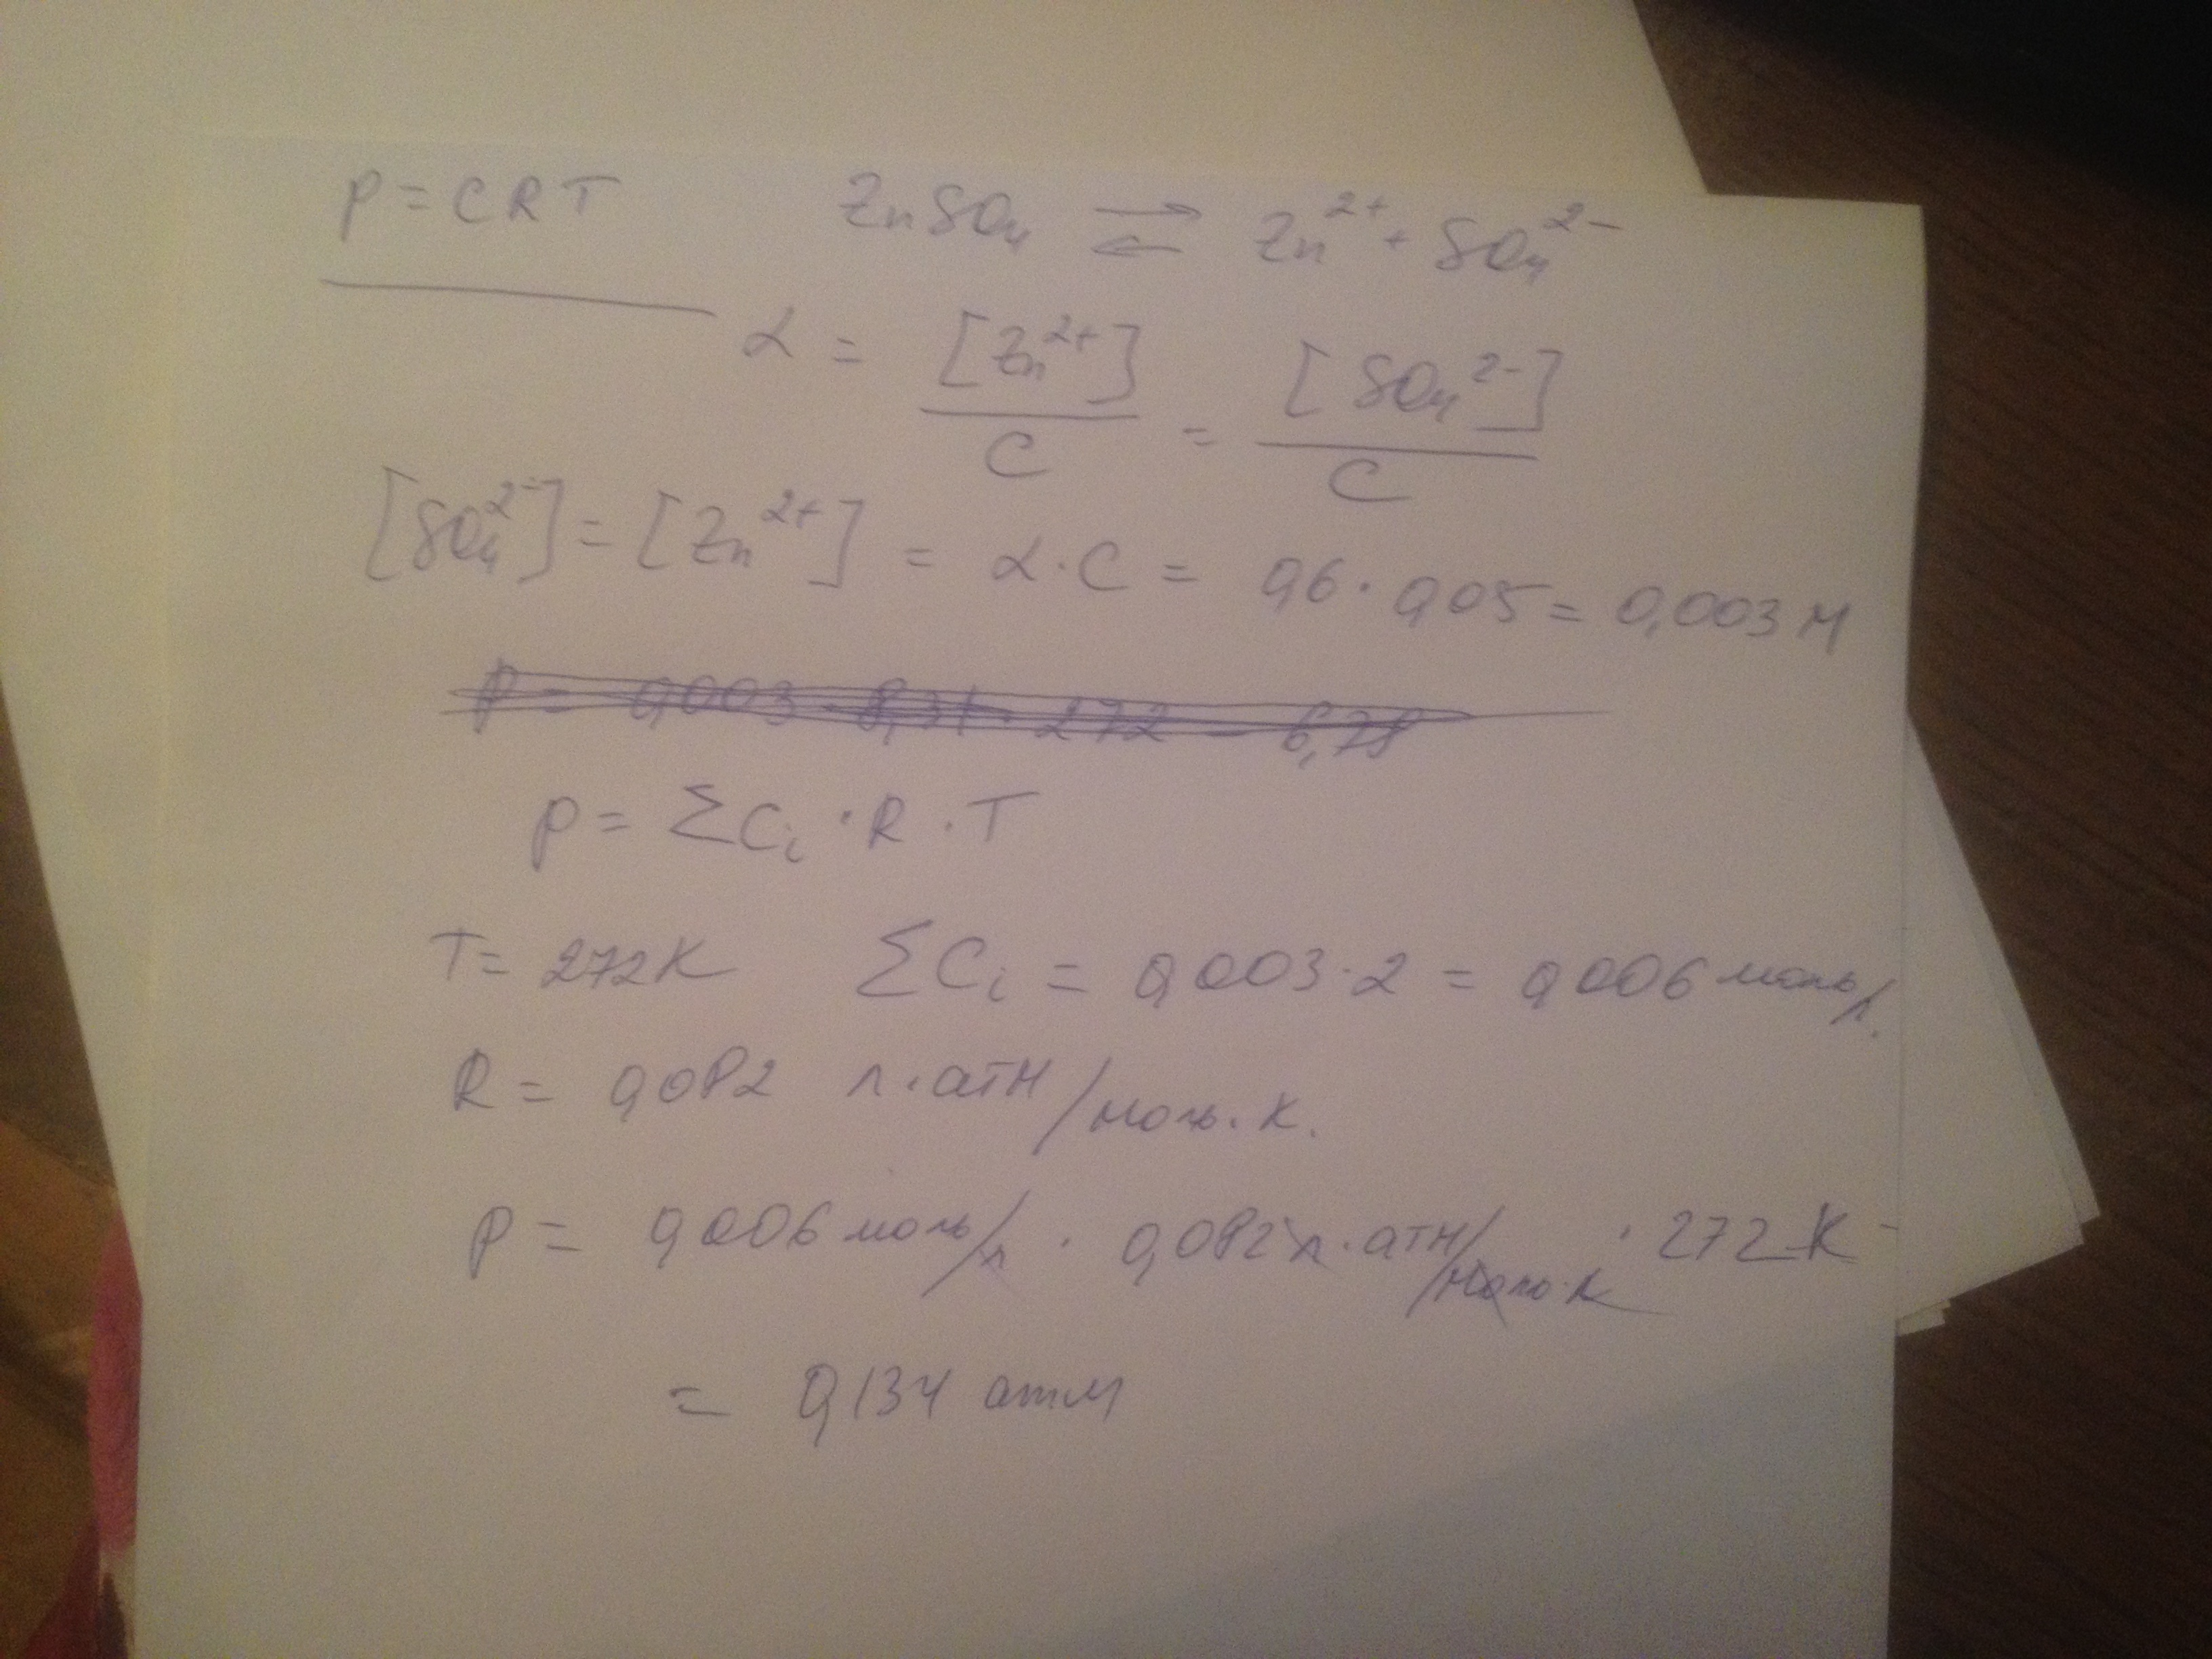 P = CRT ZnSO₄ ⇄ Zn²⁺ + SO₄²⁻
α = [Zn²⁺]/C = [SO₄²⁻]/C
[SO₄²⁻] = [Zn²⁺] = α·C = 0,6 · 0,05 = 0,003 М
P = 0,003 8,31 · 272 = 6,78
P = ΣCᵢ · R · T
T = 272 К ΣCᵢ = 0,003 · 2 = 0,006 моль/л.
R = 0,082 л·атм/моль·К.
P = 0,006 моль/л · 0,082 л·атм/моль·К · 272 К -
= 0,134 атм